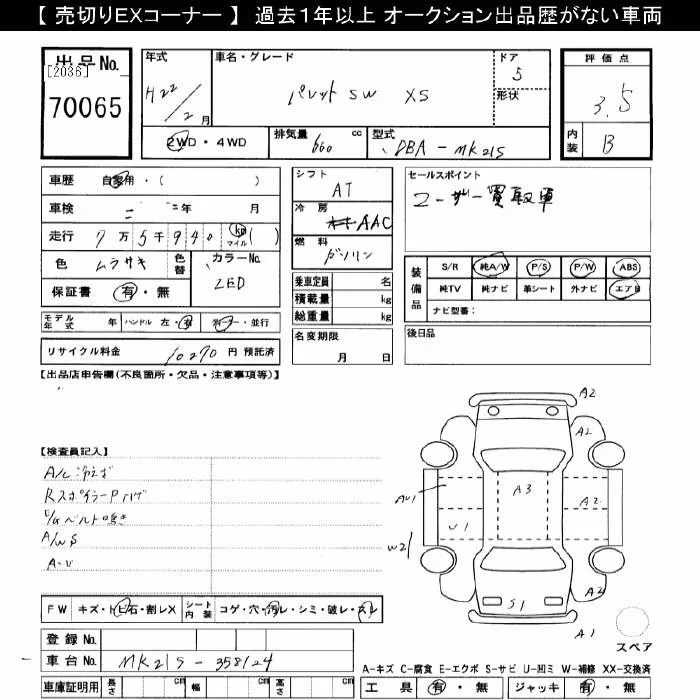 【 売切りEXコーナー 】 過去1年以上 オークション出品歴がない車両
出品No.
[2036]
70065
年式
H22/2月
車名・グレード
パレットSW XS
ドア
5
形状
評価点
3.5
内装
B
2WD・4WD
排気量
660
cc
型式
DBA-MK21S
車歴 自家用・( )
車検 年 月
走行 7万5千940 km マイル ( )
色 ムラサキ 色替 カラーNo. ZED
保証書 有・無
モデル年式 年 ハンドル 左・右 ディーラー・並行
リサイクル料金 10270 円 預託済
シフト
AT
冷房
AAC
燃料
ガソリン
乗車定員 名
積載量 kg
総重量 kg
名変期限
月 日
セールスポイント
ユーザー買取車
装備品
S/R 純A/W P/S P/W ABS
純TV 純ナビ 革シート 外ナビ エアB
ナビ型番:
後日品
【出品店申告欄(不良箇所・欠品・注意事項等)】
【検査員記入】
A/C冷えず
RスポイラーPハゲ
E/Gベルト鳴き
A/Wキズ
A・U
A2
A2
AU1
A3
A2
U1
W2
A2
S1
A1
スペア
FW キズ・トビ石・割レX シート内装 コゲ・穴・汚レ・シミ・破レ・スレ
登録No.
車台No. MK21S-358124
車庫証明用 長さ cm 幅 cm 高さ cm
A-キズ C-腐食 E-エクボ S-サビ U-凹ミ W-補修 XX-交換済
工具 有・無 ジャッキ 有・無